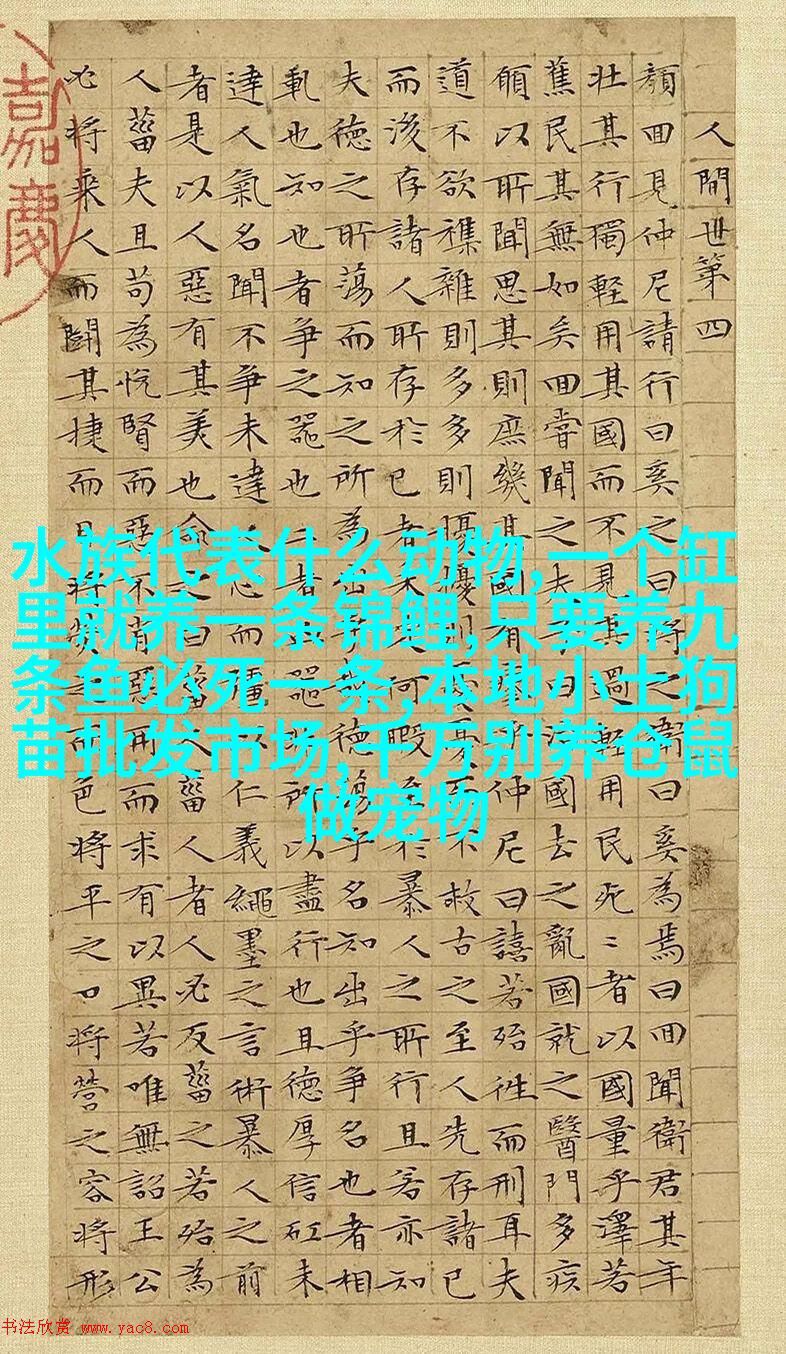 人間世第四
顏回見仲尼請行曰奚之曰將之衛曰奚為焉曰回聞衛君其年
壯其行獨輕用其國而不見其過輕用民死〻者以國量乎澤若
蕉民其無如矣回嘗聞之夫子曰國去之亂國就之醫門多疾
願以所聞思其則庶幾其國有乎仲尼曰譆若殆徃而刑耳夫
道不欲襍雜則多多則擾擾則而不救古之至人先存諸已
而後存諸人所存於已者未何暇至於暴人之所行且若亦知
夫德之所蕩而知之所為出德蕩乎名知出乎爭名也者相
軋也知也者爭之器也二者器所以盡行也且德厚信矼未
達人氣名聞不爭未達人心而以仁義繩墨之言術暴人之前
者是以人惡有其美也命之曰菑人菑人者人必反菑之若殆為
人菑夫且苟為悅賢而惡不肖惡用而求有以異若唯無詔王公
必將乘人而鬭其捷而目將熒之而色將平之口將營之容將形
嘉慶
水族代表什么动物,一个缸
里就养一条锦鲤,只要养九
条鱼必死一条,本地小土狗
苗批发市场,千万别养仓鼠
做宠物
书法欣赏 www.yac8.com